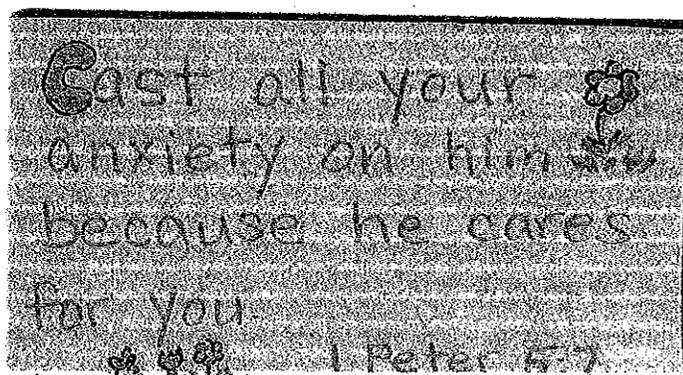 Cast all your
anxiety on him
because he cares
for you.
1 Peter 5:7